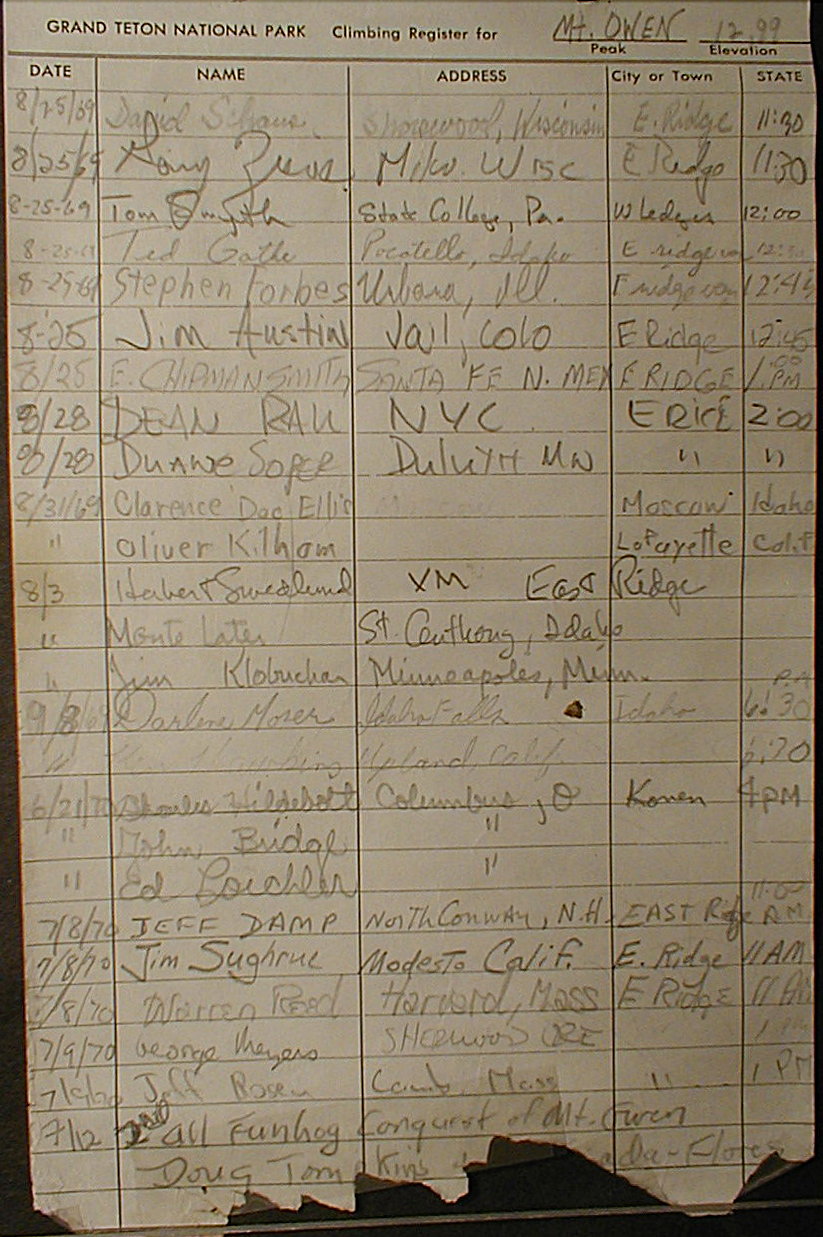 GRAND TETON NATIONAL PARK Climbing Register for Mt. OWEN 12,99
Peak Elevation
DATE NAME ADDRESS City or Town STATE
8/25/69 David Shorewood, Wisconsin E. Ridge 11:30
8/25/69 Gary Milw. Wisc E Ridge 11:30
8-25-69 Tom Smyth State College, Pa. W Ledges 12:00
8-25-69 Ted Pocatello, Idaho E ridge
8-25-69 Stephen Forbes Urbana, Ill. E ridge 12:45
8-25 Jim Austin Vail, Colo E Ridge 12:45
8/25 E. CHIPMAN SMITH SANTA FE N. MEX E RIDGE 1:00 PM
8/28 DEAN RAU NYC E 2:00
8/28 Duane Soper Duluth MN " "
8/31/69 Clarence "Doc" Ellis Moscow Idaho
" Oliver Kilham Lafayette Calif
8/3 Herbert Swedlund XM East Ridge
" Monte Later St. Anthony, Idaho
" Jim Klobuchar Minneapolis, Minn.
9/8/69 Darlene Moser Idaho Falls Idaho 6:30
" Upland, Calif.
6/21/70 Charles Hildebolt Columbus, O Koven 4 PM
" John Bridge "
" Ed "
7/8/70 JEFF DAMP North Conway, N.H. EAST Ridge 11:00 AM
7/8/70 Jim Sughrue Modesto Calif. E. Ridge 11 AM
7/8/70 Warren Reed Harvard, Mass E Ridge 11 AM
7/9/70 George Meyers SHERWOOD ORE 1 PM
7/9/70 Jeff Rosen Camb, Mass " 1 PM
7/12 2nd all Funhog Conquest of Mt. Owen
Doug Tompkins